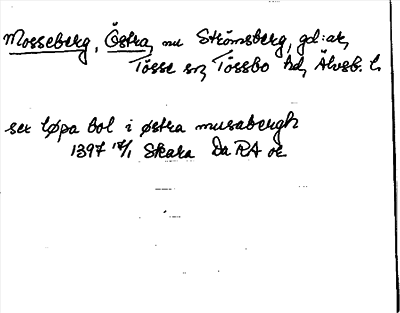 Mosseberg, Östra, nu Strömsberg, gd:ar,
Tösse sn, Tössbo hd, Älvsb. l.
sex løpa bol i østra musabergh
1397 17/1 Skara Da RA or